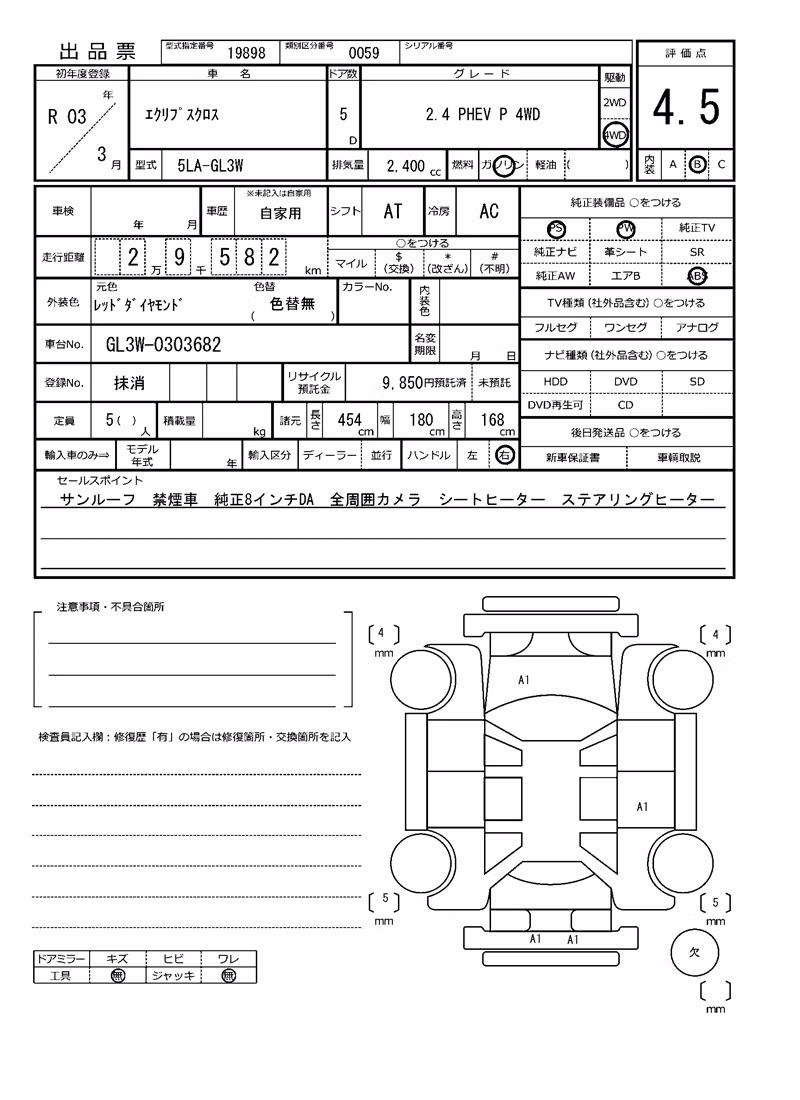 出品票 型式指定番号 19898 類別区分番号 0059 シリアル番号
評価点
4.5
内装 A B C
初年度登録 車名 ドア数 グレード 駆動
R 03 年 3 月 エクリプスクロス 5 D 2.4 PHEV P 4WD 2WD 4WD
型式 5LA-GL3W 排気量 2,400 cc 燃料 ガソリン 軽油 ( )
車検 年 月 車歴 ※未記入は自家用 自家用 シフト AT 冷房 AC
走行距離 2 万 9 千 5 8 2 km ○をつける
マイル $(交換) *(改ざん) #(不明)
外装色 元色 レッドダイヤモンド 色替 ( 色替無 ) カラーNo. 内装色
車台No. GL3W-0303682 名変期限 月 日
登録No. 抹消 リサイクル預託金 9,850円預託済 未預託
定員 5 ( ) 人 積載量 kg 諸元 長さ 454 cm 幅 180 cm 高さ 168 cm
輸入車のみ⇒ モデル年式 年 輸入区分 ディーラー 並行 ハンドル 左 右
純正装備品 ○をつける
PS PW 純正TV
純正ナビ 革シート SR
純正AW エアB ABS
TV種類(社外品含む)○をつける
フルセグ ワンセグ アナログ
ナビ種類(社外品含む)○をつける
HDD DVD SD
DVD再生可 CD
後日発送品 ○をつける
新車保証書 車輌取説
セールスポイント
サンルーフ 禁煙車 純正8インチDA 全周囲カメラ シートヒーター ステアリングヒーター
注意事項・不具合箇所
検査員記入欄:修復歴「有」の場合は修復箇所・交換箇所を記入
ドアミラー キズ ヒビ ワレ
工具 無 ジャッキ 無
[ 4 ] mm [ 4 ] mm
A1
A1
[ 5 ] mm [ 5 ] mm
A1 A1
欠
[ ] mm